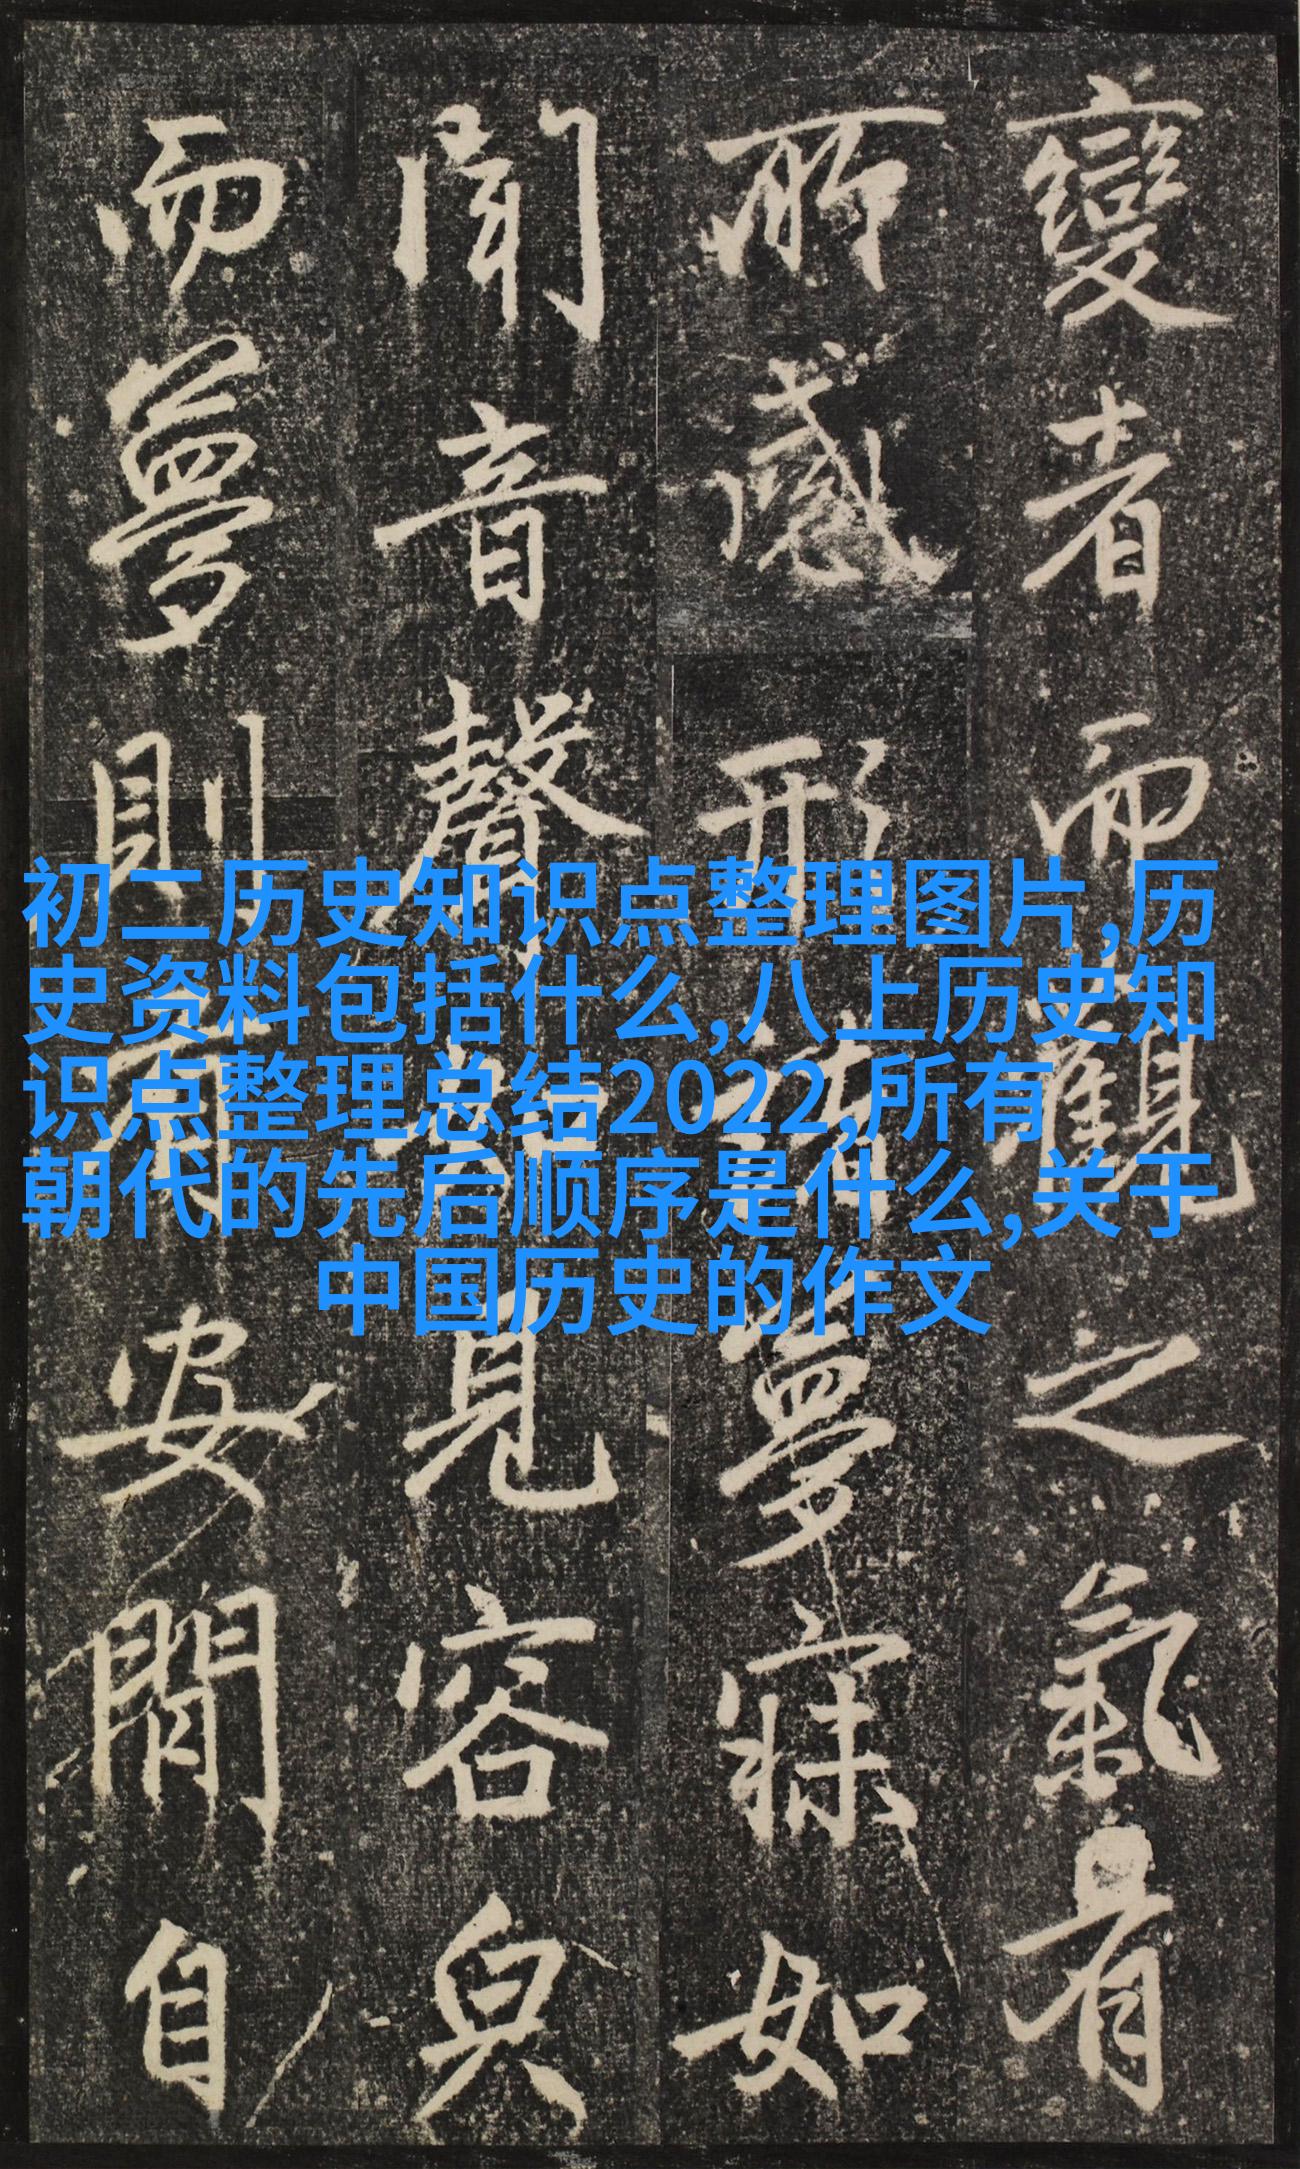 變者而觀之氣有
所感形諸夢寐如
聞音聲見容皃
而夢則安閒自
初二历史知识点整理图片,历
史资料包括什么,八上历史知
识点整理总结2022,所有
朝代的先后顺序是什么,关于
中国历史的作文